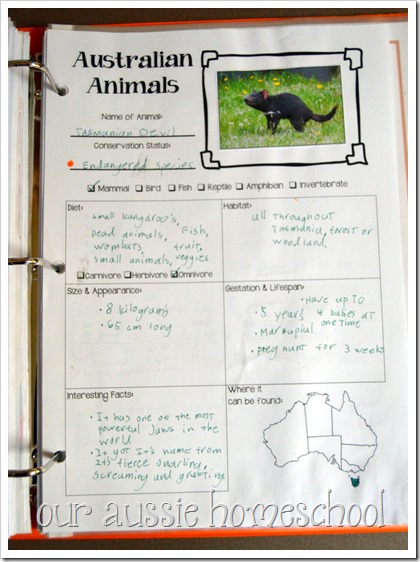 Australian
Animals
Name of Animal:
Tasmanian Devil
Conservation Status:
Endangered species
Mammal Bird Fish Reptile Amphibian Invertebrate
Diet:
small kangaroo's,
Dead animals, Fish,
wombats, fruit,
small animals, veggies
Carnivore Herbivore Omnivore
Habitat:
all throughout
Tasmania, forest or
woodland
Size & Appearance:
• 8 kilograms
• 65 cm long
Gestation & Lifespan:
• Have up to
• 5 years 4 babies at
• Marsupial one time
• pregnant for 3 weeks
Interesting Facts:
• It has one of the most
powerful Jaws in the
world
• It got It's name from
It's fierce snarling,
screaming and grunting
Where it
can be found:
our aussie homeschool